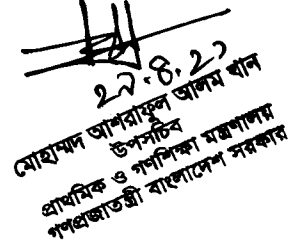 ২৯.৪.২১
মোহাম্মদ আশরাফুল আলম খান
উপসচিব
প্রাথমিক ও গণশিক্ষা মন্ত্রণালয়
গণপ্রজাতন্ত্রী বাংলাদেশ সরকার